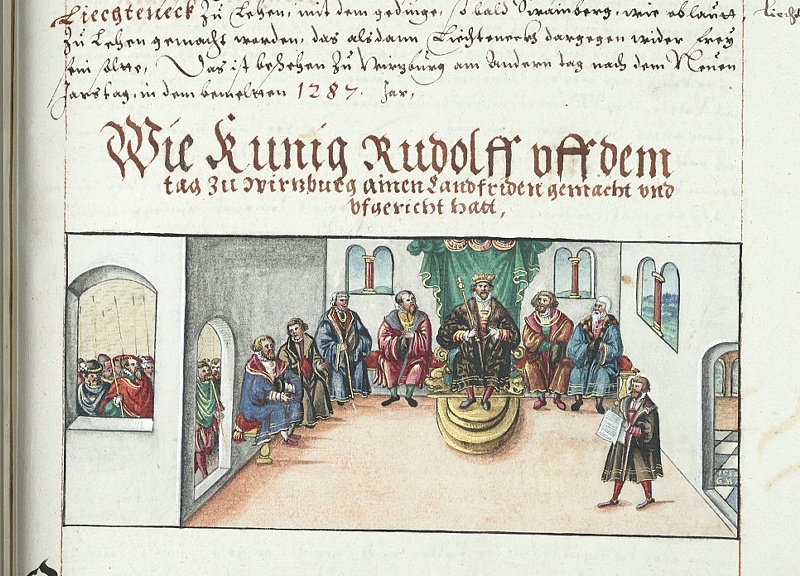 Liechteneck zu Lehen, mit dem gedinge, so bald Swainberg, wie oblautt, kirchs
zu Lehen gemacht worden, das alsdann Liechteneckh dargegen wider frey
sein solte, Das ist beschehen zu Wurtzburg am Andern tag nach dem Neuen
Jarstag, in dem bemeltten 1287. Jar,
Wie Kunig Rudolff uff dem
tag zu Wirtzburg ainen Landfriden gemacht und
ufgericht hatt,